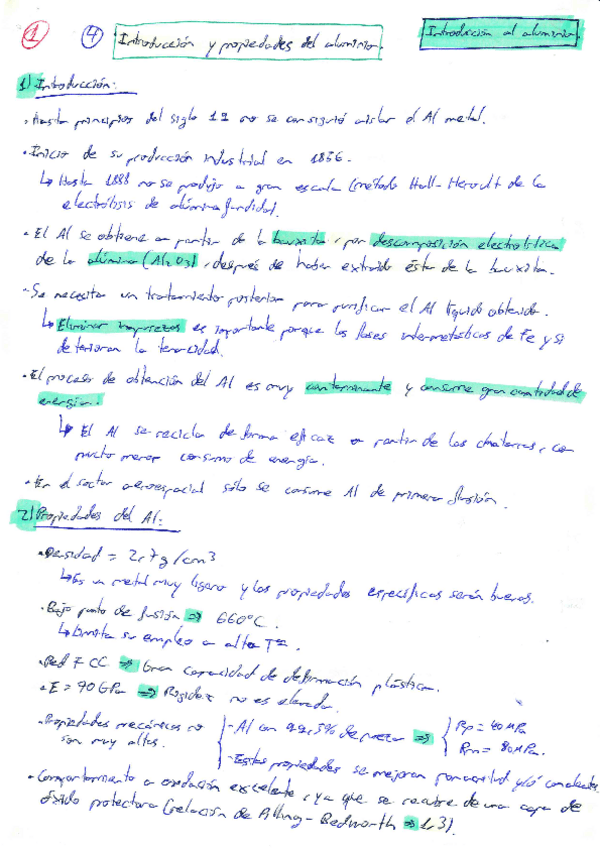 1 4 Introducción y propiedades del aluminio. Introducción al aluminio.
1) Introducción:
• Hasta principios del siglo 19 no se consiguió aislar el Al metal.
• Inicio de su producción industrial en 1856.
↳ Hasta 1888 no se produjo a gran escala (método Hall-Heroult de la
electrólisis de alúmina fundida).
• El Al se obtiene a partir de la bauxita, por descomposición electrolítica
de la alúmina (Al2O3), después de haber extraído ésta de la bauxita.
• Se necesita un tratamiento posterior para purificar el Al líquido obtenido.
↳ Eliminar impurezas es importante porque las fases intermetálicas de Fe y Si
deterioran la tenacidad.
• El proceso de obtención del Al es muy contaminante y consume gran cantidad de
energía.
↳ El Al se recicla de forma eficaz a partir de las chatarras, con
mucho menor consumo de energía.
• En el sector aeroespacial sólo se consume Al de primera fusión.
2) Propiedades del Al:
• Densidad = 2,7 g/cm3
↳ Es un metal muy ligero y las propiedades específicas serán buenas.
• Bajo punto de fusión ⇒ 660ºC.
↳ Limita su empleo a alta Tª.
• Red FCC ⇒ Gran capacidad de deformación plástica.
• E = 70 GPa ⇒ Rigidez no es elevada.
• Propiedades mecánicas no son muy altas. { - Al con 99,5% de pureza ⇒ { Rp = 40 MPa
Rm = 80 MPa.
- Estas propiedades se mejoran por acritud y/o aleantes.
• Comportamiento a oxidación excelente, ya que se recubre de una capa de
óxido protectora (relación de Pilling-Bedworth ⇒ 1,3).